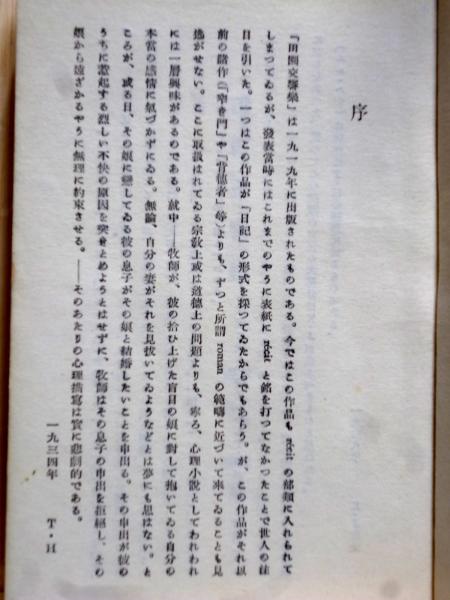 序
『田園交響樂』は一九一九年に出版されたものである。今ではこの作品も récit の部類に入れられて
しまつてゐるが、發表當時にはこれまでのやうに表紙に récit と銘を打つてなかつたことで世人の注
目を引いた。一つはこの作品が「日記」の形式を採つてゐたからでもあらう。が、この作品がそれ以
前の諸作(『窄き門』や『背徳者』等)よりも、ずつと所謂 roman の範疇に近づいて來てゐることも見
逃がせない。ここに取扱はれてゐる宗敎上或は道德上の問題よりも、寧ろ、心理小説としてわれわれ
には一層興味があるのである。就中——牧師が、彼の拾ひ上げた盲目の娘に對して抱いてゐる自分の
本當の感情に氣づかずにゐる。無論、自分の妻がそれを見拔いてゐようなどとは夢にも思はない。と
ころが、或る日、その娘に戀してゐる彼の息子がその娘と結婚したいことを申出る。その申出が彼の
うちに激起する烈しい不快の原因を突きとめようとはせずに、牧師はその息子の申出を拒絶し、その
娘から遠ざかるやうに無理に約束させる。——そのあたりの心理描寫は實に悲劇的である。
一九三四年 T・H